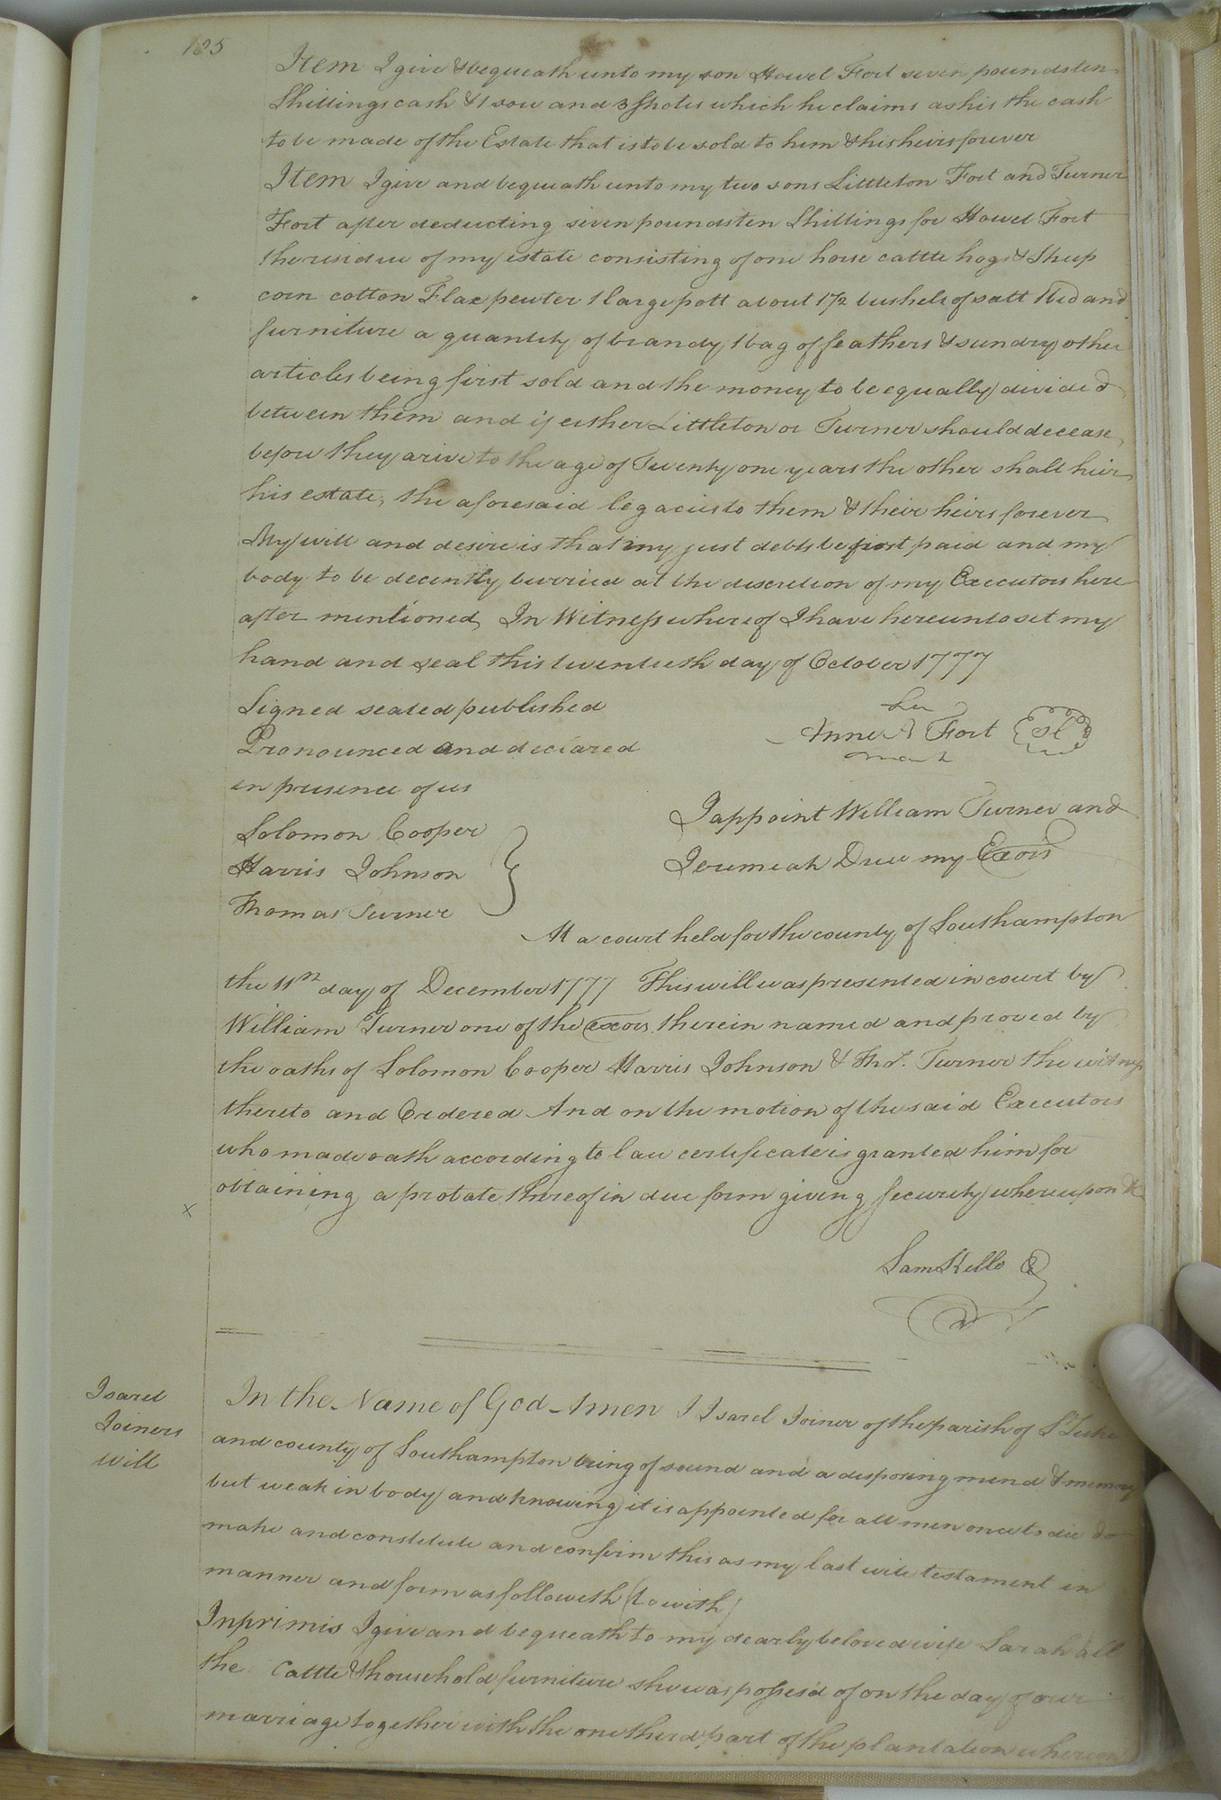 125
Item I give & bequeath unto my son Howel Fort seven pounds ten
Shillings cash & 1 sow and 3 Shotes which he claims as his the cash
to be made of the Estate that is to be sold to him & his heirs forever
Item I give and bequeath unto my two sons Littleton Fort and Turner
Fort after deducting seven pounds ten Shillings for Howel Fort
the residue of my estate consisting of one horse cattle hogs & Sheep
corn cotton Flax pewter 1 large pott about 1 1/2 bushels of salt 1 bed and
furniture a quantity of brandy 1 bag of feathers & sundry other
articles being first sold and the money to be equally divided
between them and if either Littleton or Turner should decease
before they arive to the age of Twenty one years the other shall heir
his estate, the aforesaid legacies to them & their heirs forever
My will and desire is that my just debts be first paid and my
body to be decently burried at the discretion of my Executors here
after mentioned, In Witness whereof I have hereunto set my
hand and seal this twentieth day of October 1777
Signed sealed published
her
Anne A Fort Sl
mark
Pronounced and declared
in presence of us
I appoint William Turner and
Jeremiah Drew my Exors
Solomon Cooper
Harris Johnson
Thomas Turner
At a court held for the county of Southampton
the 11th day of December 1777 This will was presented in court by
William Turner one of the exors therein named and proved by
the oaths of Solomon Cooper Harris Johnson & Thos. Turner the witness
thereto and Ordered And on the motion of the said Executors
who made oath according to law certificate is granted him for
obtaining a probate thereof in due form giving Security whereupon &c
x
Sam Kello
Isarel
Joiners
will
In the Name of God Amen I Isarel Joiner of the parish of St Luke
and county of Southampton being of sound and a disposing mind & memory
but weak in body and knowing it is appointed for all men once to die do
make and constitute and confirm this as my last will testament in
manner and form as followeth (to with)
Inprimis I give and bequeath to my dearly beloved wife Sarah all
the Cattle & household furniture she was possesd of on the day of our
marriage together with the one third part of the plantation whereon